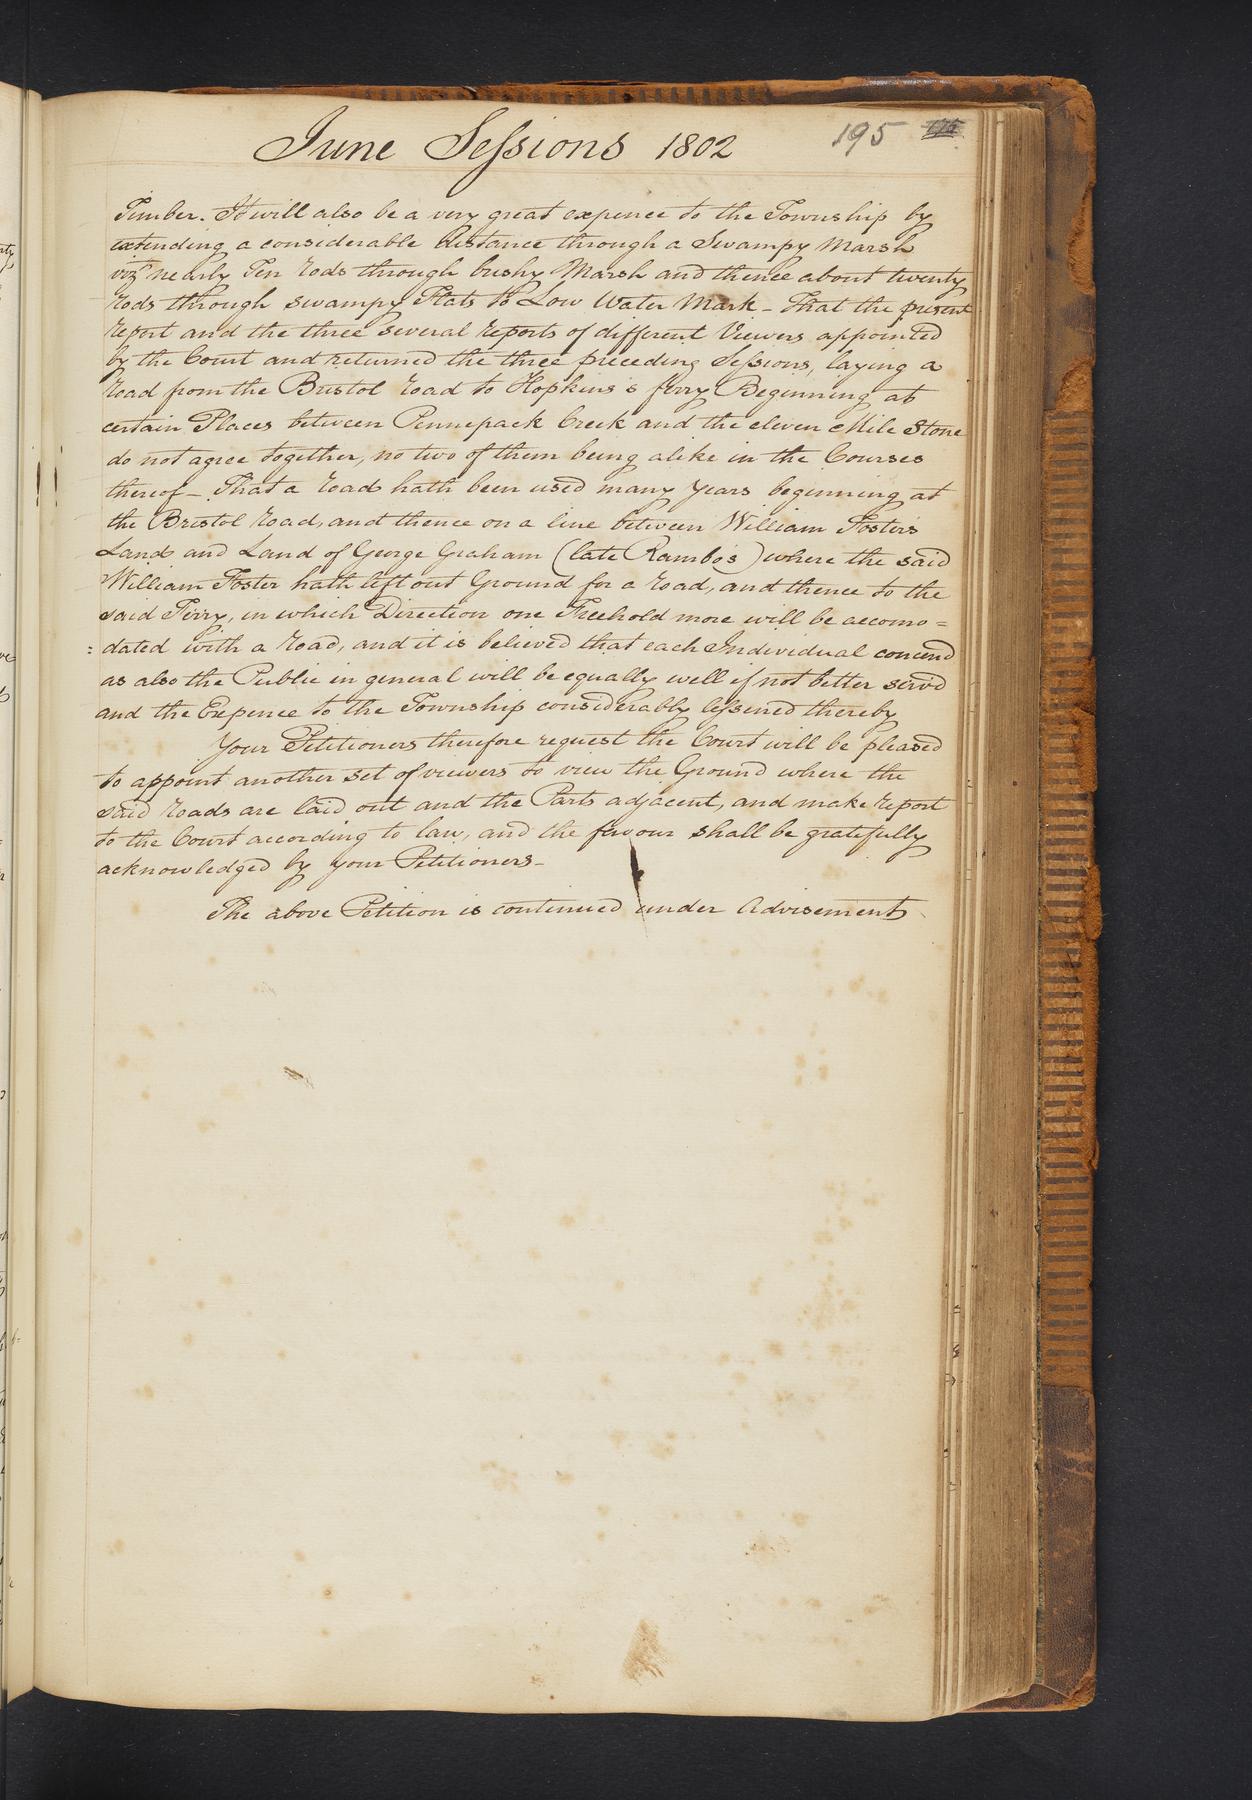 June Sessions 1802
195
Timber. It will also be a very great expence to the Township by
extending a considerable distance through a Swampy Marsh
vizt nearly Ten rods through bushy Marsh and thence about twenty
rods through swampy Flats to Low Water Mark - That the present
report and the three several reports of different Viewers appointed
by the Court and returned the three preceding Sessions, laying a
road from the Bristol road to Hopkins's ferry Beginning at
certain Places between Pennepack Creek and the eleven Mile Stone
do not agree together, no two of them being alike in the Courses
thereof - That a road hath been used many years beginning at
the Bristol road, and thence on a line between William Foster's
Land and Land of George Graham (late Rambo's) where the said
William Foster hath left out Ground for a road, and thence to the
said Ferry, in which Direction one Freehold more will be accomo=
=dated with a road, and it is believed that each Individual concend
as also the Public in general will be equally well if not better serv'd
and the Expence to the Township considerably lessened thereby
Your Petitioners therefore request the Court will be pleased
to appoint another set of viewers to view the Ground where the
said roads are laid out and the Parts adjacent, and make report
to the Court according to law, and the favour shall be gratefully
acknowledged by your Petitioners -
The above Petition is continued under Advisement